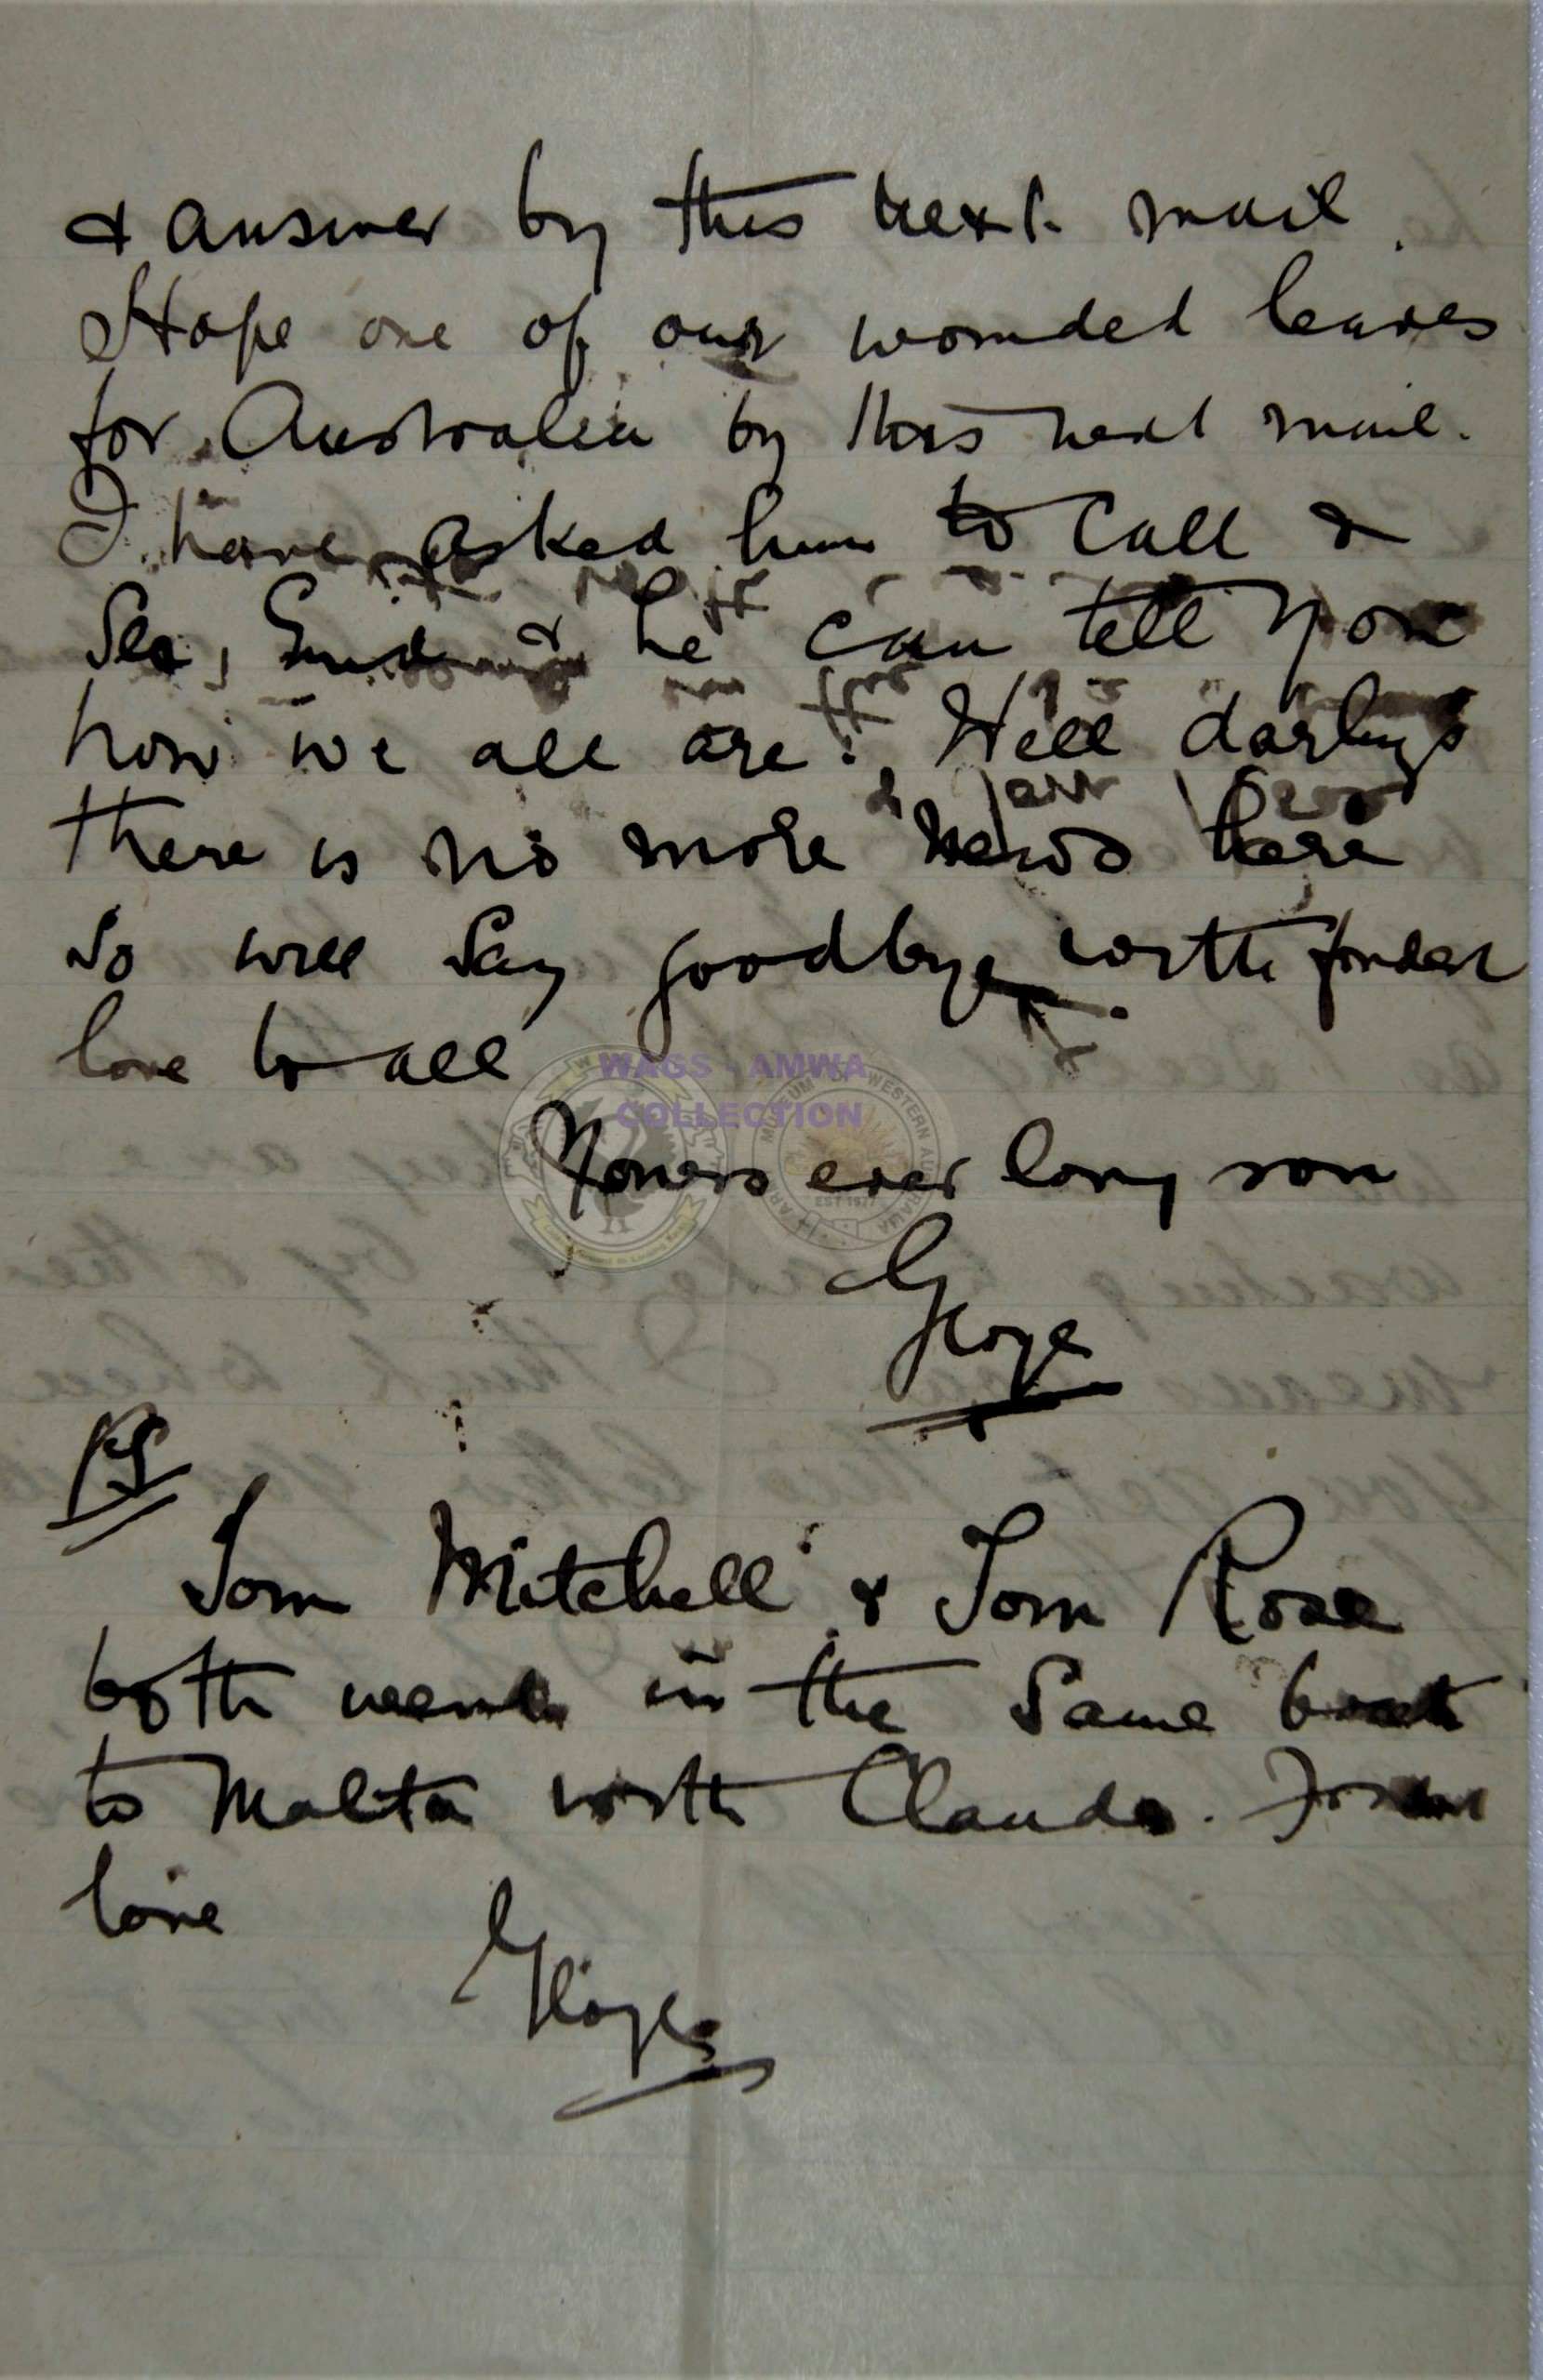 & answer by this next mail.
Hope one of our wounded leaves
for Australia by this next mail.
I have asked him to call &
see, Enid & he can tell you
how we all are. Well darlings
there is no more news here
so will say goodbye with fondest
love to all
WAGS - AMWA
COLLECTION
Yours ever long son
George
PS
Tom Mitchell & Tom Rose
both went in the same boat
to Malta with Claude. Fondest
love
George